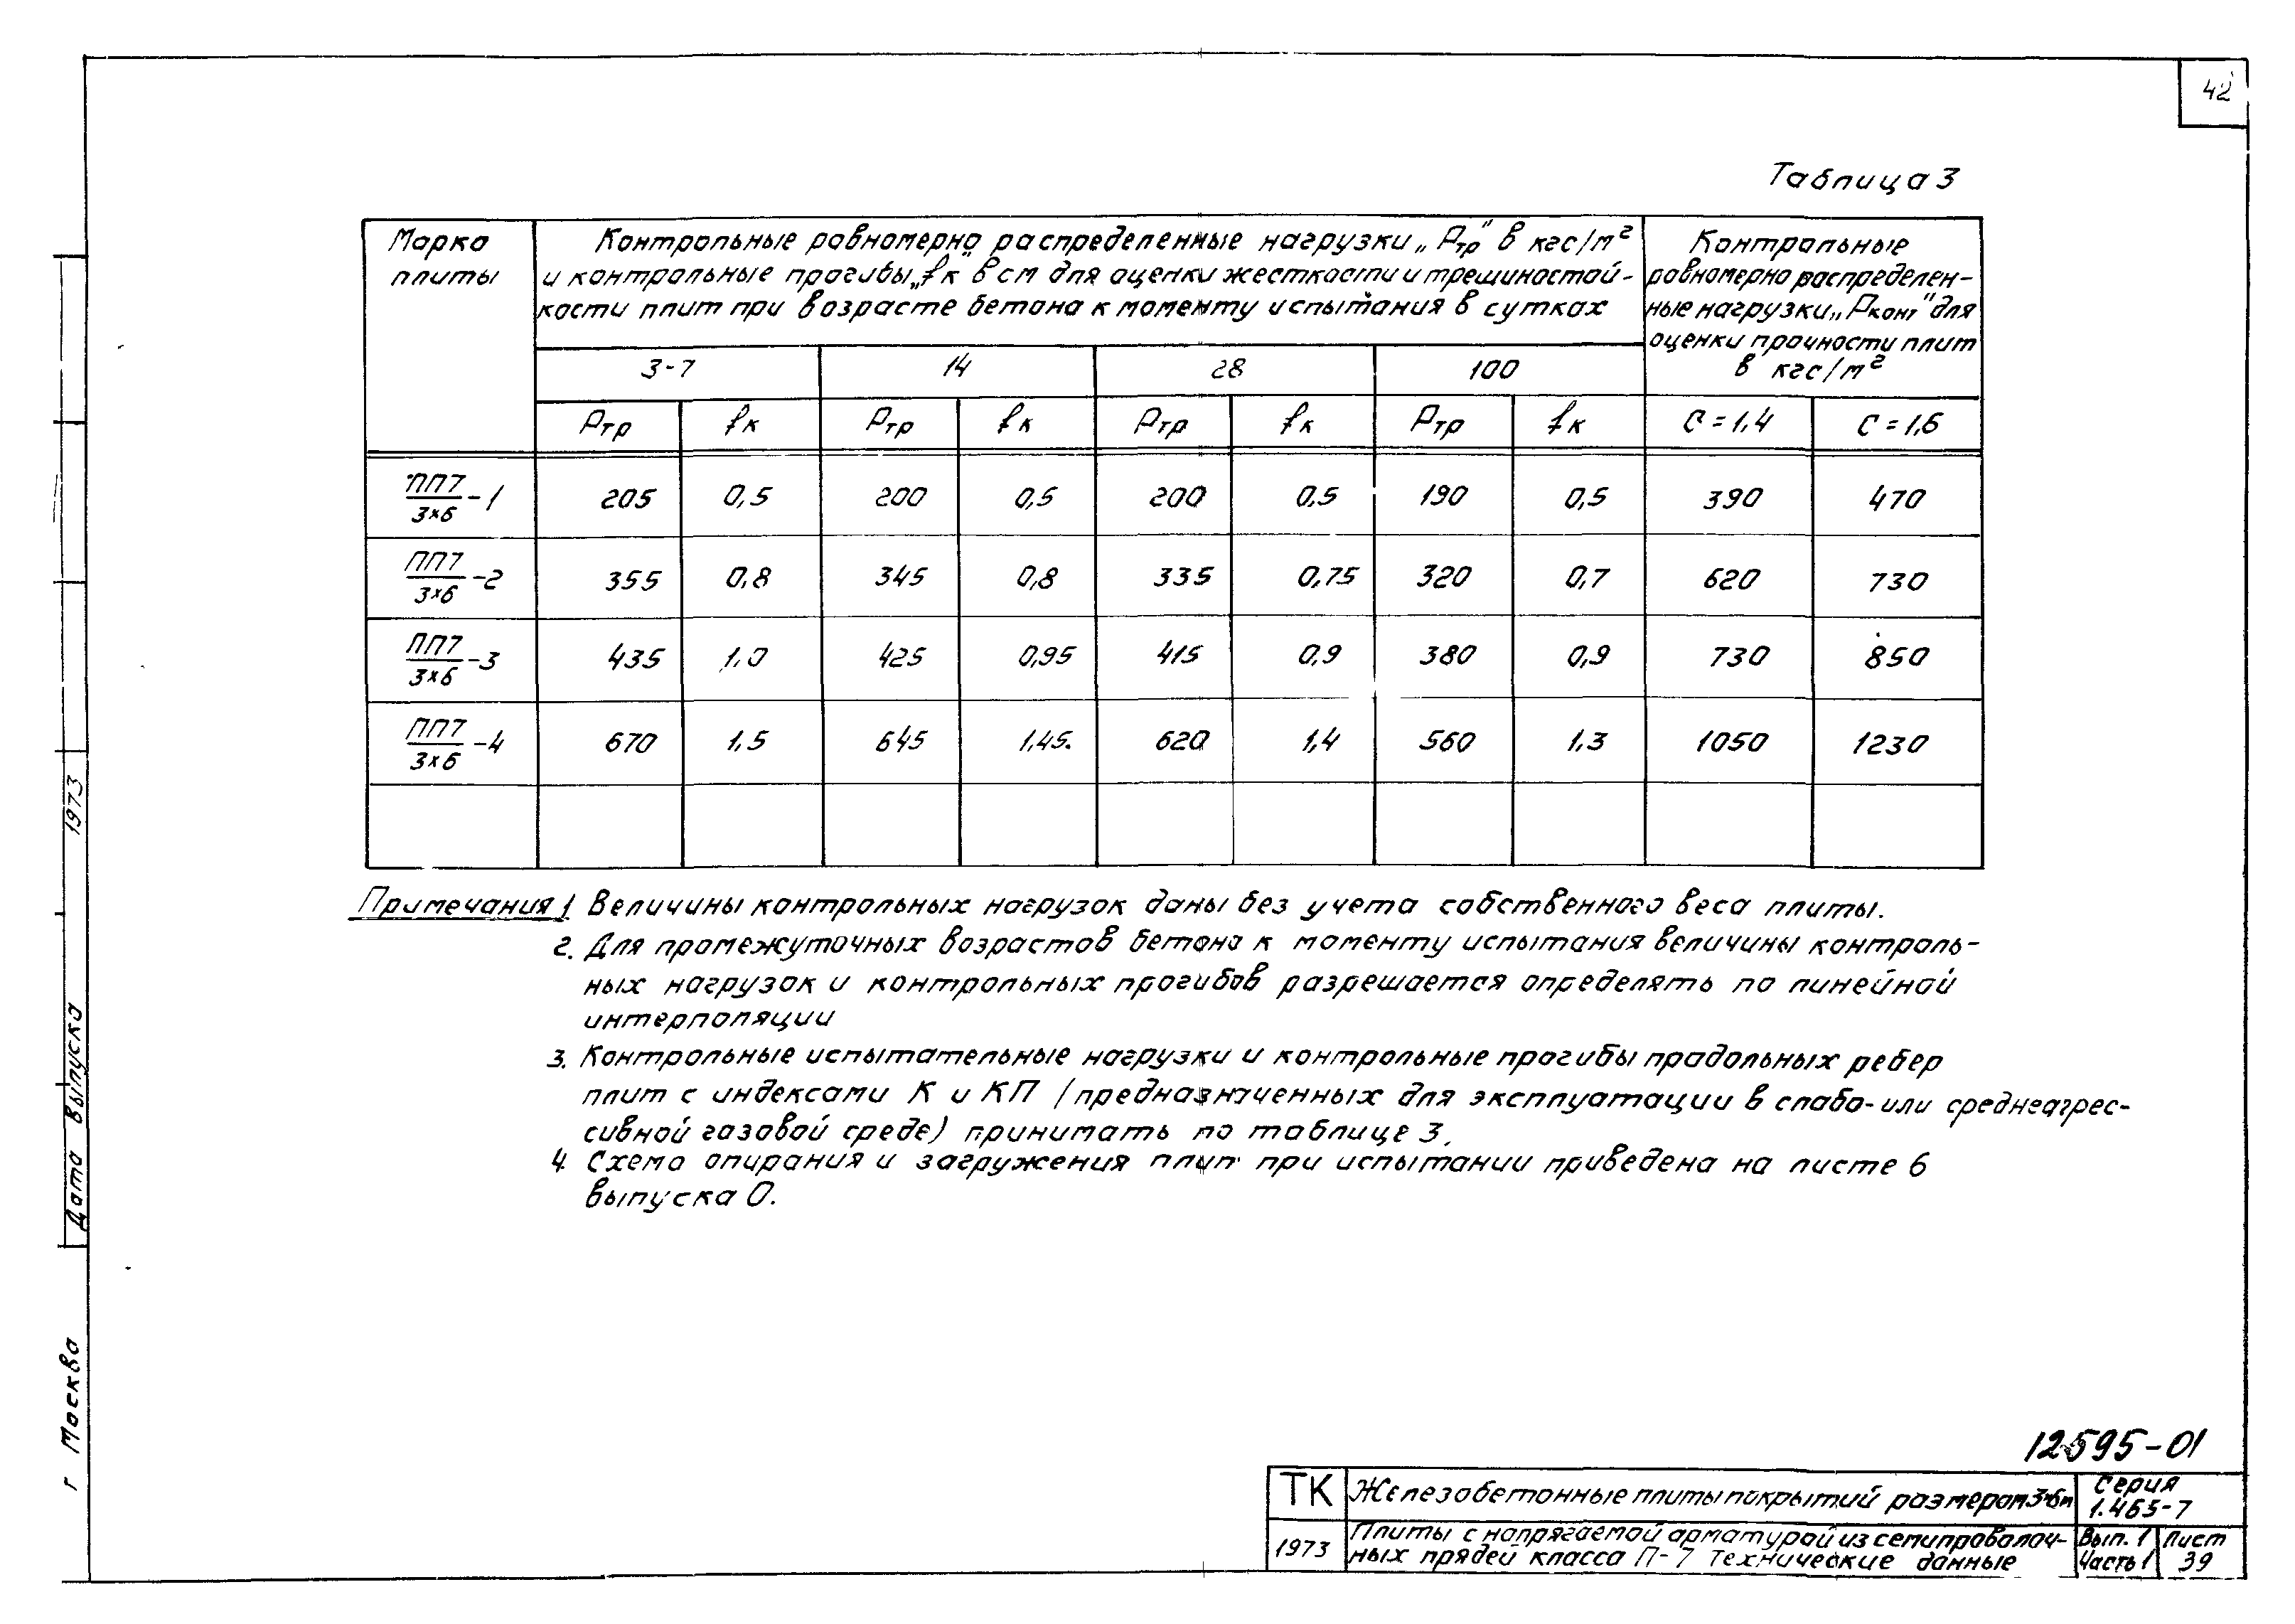 42
Таблица 3
Марка плиты
Контрольные равномерно распределенные нагрузки „Pтр" в кгс/м²
и контрольные прогибы „fк" в см для оценки жесткости и трещиностой-
кости плит при возрасте бетона к моменту испытания в сутках
Контрольные
равномерно распределен-
ные нагрузки „Pконт" для
оценки прочности плит
в кгс/м²
3-7 14 28 100
Pтр fк Pтр fк Pтр fк Pтр fк C=1,4 C=1,6
ПП7/3×6-1 205 0,5 200 0,5 200 0,5 190 0,5 390 470
ПП7/3×6-2 355 0,8 345 0,8 335 0,75 320 0,7 620 730
ПП7/3×6-3 435 1,0 425 0,95 415 0,9 380 0,9 730 850
ПП7/3×6-4 670 1,5 645 1,45 620 1,4 560 1,3 1050 1230
Примечания 1 Величины контрольных нагрузок даны без учета собственного веса плиты.
2. Для промежуточных возрастов бетона к моменту испытания величины контроль-
ных нагрузок и контрольных прогибов разрешается определять по линейной
интерполяции
3. Контрольные испытательные нагрузки и контрольные прогибы продольных ребер
плит с индексами К и КП /предназначенных для эксплуатации в слабо- или среднеагрес-
сивной газовой среде) принимать по таблице 3.
4 Схема опирания и загружения плит при испытании приведена на листе 6
выпуска 0.
г Москва Дата выпуска 1973
12595-01
ТК Железобетонные плиты покрытий размером 3×6м Серия
1.465-7
1973 Плиты с напрягаемой арматурой из семипроволоч-
ных прядей класса П-7 Технические данные
Вып. 1 Лист
Часть 1 39